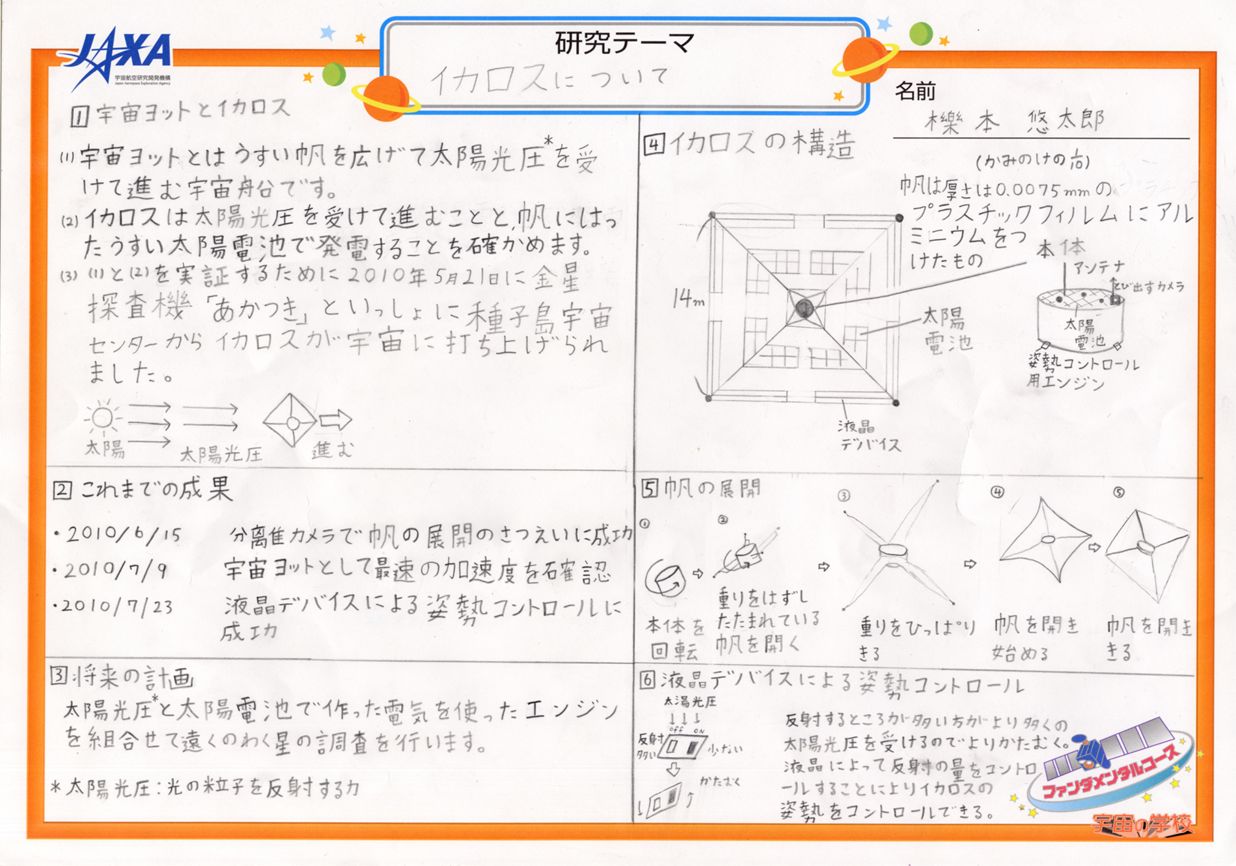 JAXA
宇宙航空研究開発機構
Japan Aerospace Exploration Agency
研究テーマ
イカロスについて
名前
櫟本 悠太郎
1 宇宙ヨットとイカロス
(1) 宇宙ヨットとはうすい帆を広げて太陽光圧*を受
けて進む宇宙船です。
(2) イカロスは太陽光圧を受けて進むことと、帆にはっ
たうすい太陽電池で発電することを確かめます。
(3) (1)と(2)を実証するために2010年5月21日に金星
探査機「あかつき」といっしょに種子島宇宙
センターからイカロスが宇宙に打ち上げられ
ました。
太陽
太陽光圧
進む
2 これまでの成果
・2010/6/15 分離カメラで帆の展開のさつえいに成功
・2010/7/9 宇宙ヨットとして最速の加速度を確認
・2010/7/23 液晶デバイスによる姿勢コントロールに
成功
3 将来の計画
太陽光圧*と太陽電池で作った電気を使ったエンジン
を組合せて遠くのわく星の調査を行います。
*太陽光圧:光の粒子を反射する力
4 イカロスの構造
帆は厚さは0.0075mmの
プラスチックフィルムにアル
ミニウムをつ
けたもの
本体
アンテナ
とび出すカメラ
太陽
電池
姿勢コントロール
用エンジン
14m
太陽
電池
液晶
デバイス
5 帆の展開
①
本体を
回転
②
重りをはずし
たたまれている
帆を開く
③
重りをひっぱり
きる
④
帆を開き
始める
⑤
帆を開き
きる
6 液晶デバイスによる姿勢コントロール
太陽光圧
off ON
反射
多い
少ない
かたむく
反射するところが多い方がより多くの
太陽光圧を受けるのでよりかたむく。
液晶によって反射の量をコントロ
ールすることによりイカロスの
姿勢をコントロールできる。
ファンダメンタルコース
宇宙の学校